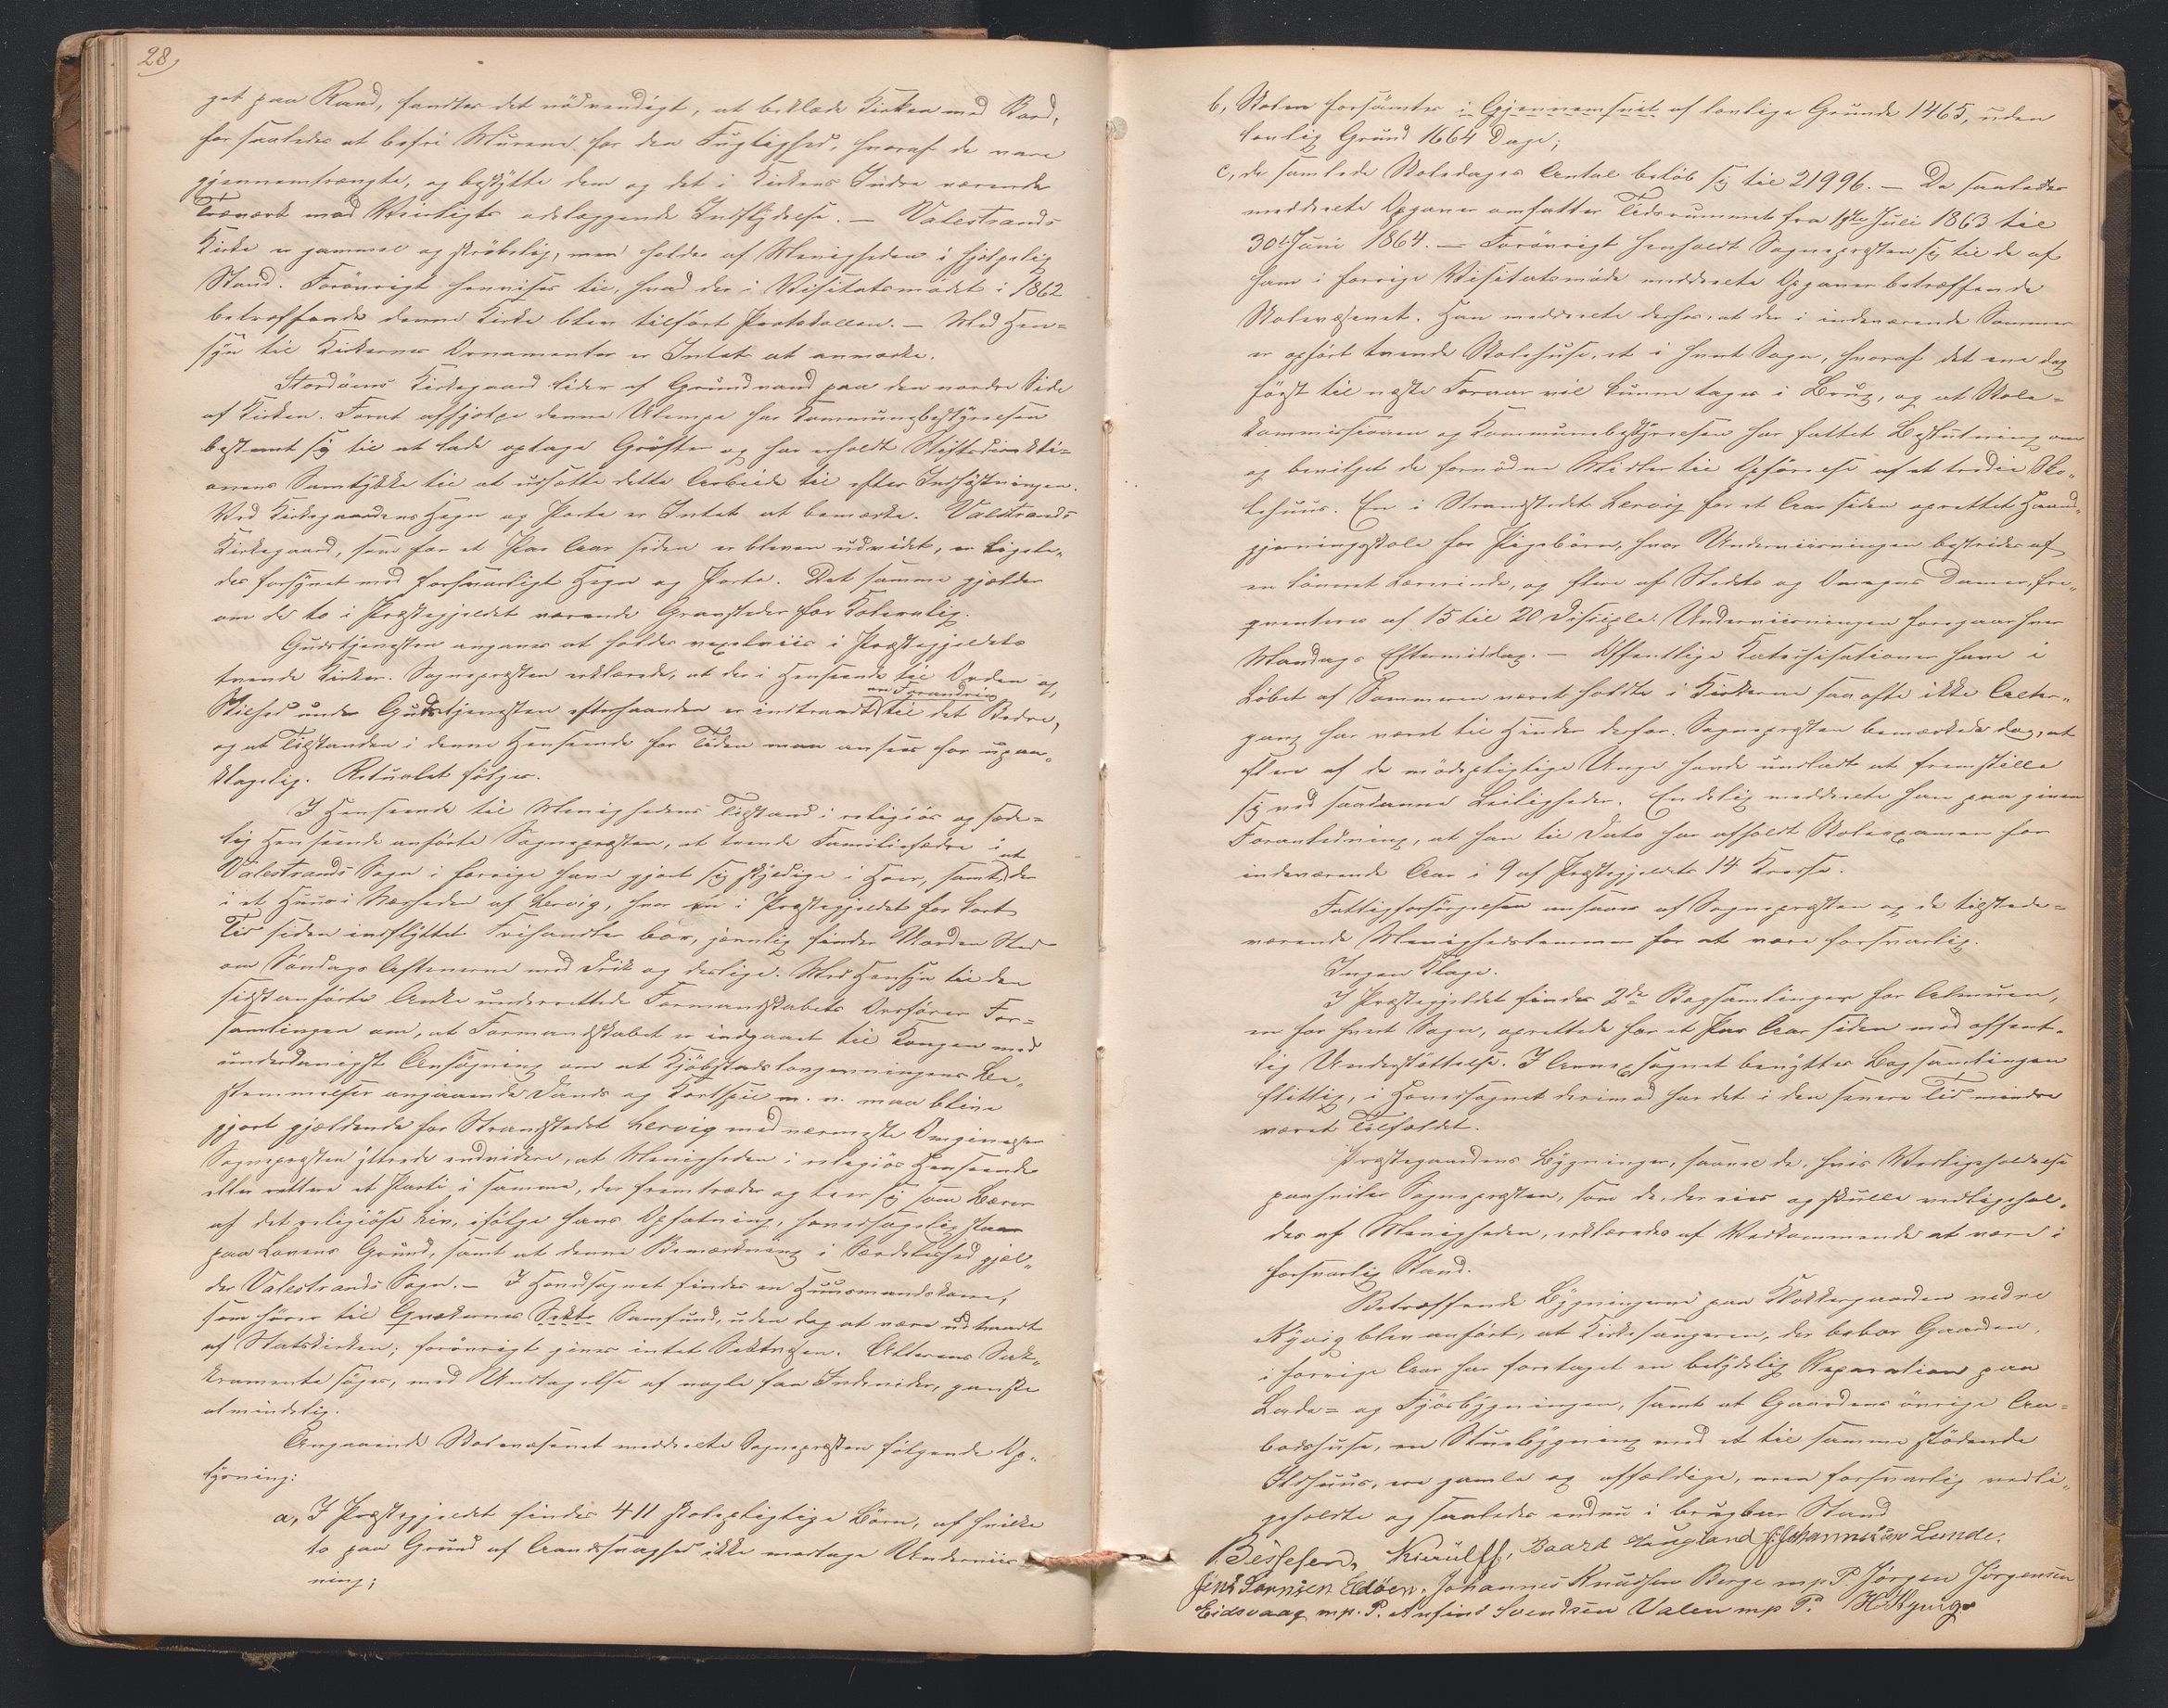 28,
get paa Raad, fandtes det nödvendigt, at beklæde Kirken med Bord,
for saaledes at befri Murene for den Fugtighed, hvoraf de vare
gjennemtrængte, og beskytte dem og det i Kirkens Indre værende
Træværk mod Veirligets ødelæggende Indflydelse. — Valestrands
Kirke er gammel og skröbelig, men holdes af Menigheden i hjelpelig
Stand. Forövrigt henvises til, hvad der i Visitatsmödet i 1862
betræffende denne Kirke blev tilfört Protokollen. — Med Hen=
syn til Kirkernes Ornamenter er Intet at anmærke.
Stordöens Kirkegaard lider af Grundvand paa den nordre Side
af Kirken. Forat afhjælpe denne Ulempe har Kommunebestyrelsen
bestemt sig til at lade optage Gröfter og har erholdt Stiftsdirekti=
onens Samtykke til at udsætte dette Arbeide til efter Indhöstningen.
Ved Kirkegaardens Hegn og Porte er Intet at bemærke. Valestrands
Kirkegaard, som for et Par Aar siden er bleven udvidet, er ligele„
des forsynet med forsvarligt Hegn og Porte. Det samme gjælder
om de to i Præstegjeldet værende Gravsteder for Kolera lig.
Gudstjenesten angaves at holdes vexelviis i Præstegjeldets
tvende Kirker. Sognepræsten erklærede, at der i Henseende til Orden og
en Forandring
Stilhed under Gudstjenesten efterhaanden er indtraadt til det Bedre,
og at Tilstanden i denne Henseende for Tiden maa ansees for upaa„
klagelig. Ritualet følges.
I Henseende til Menighedens Tilstand i religiös og sæde=
lig Henseende anförte Sognepræsten, at tvende Familiefædre i
at
Valestrands Sogn i forrige have gjort sig skyldige i Hoer, samt der
i et Huus i Nærheden af Lervig, hvor en i Præstegjeldet for kort
Tid siden indflyttet Frihandler bor, jevnlig finder Uorden Sted
om Söndags Aftenerne med Drik og deslige. Med Hensyn til den
sidst anförte Anke underrettede Formandskabets Ordförer For=
samlingen om, at Formandskabet er indgaaet til Kongen med
underdanigst Ansögning om at Kjöbstadslovgivningens Be„
stemmelser angaaende Dands og Kortspil m. v. maa blive
gjort gjældende for Strandstedet Lervig med nærmeste Omgivelser
Sognepræsten yttrede endvidere, at Menigheden i religiös Henseende
eller rettere et Parti i samme, der fremtræder og teer sig som Bærer
af det religiöse Liv, ifölge hans Opfatning, hovedsagelig staar
paa Lovens Grund, samt at denne Bemærkning i Særdeleshed gjæl„
der Valestrands Sogn. — I Hovedsognet findes en Huusmandskone,
som hörer til Qvækernes Sekts Samfund, uden dog at være udtraadt
af Statskirken; forövrigt gives intet Sektvæsen. Alterens Sak„
kramente söges, med Undtagelse af nogle faa Individer, ganske
almindelig.
Angaaende Skolevæsenet meddeelte Sognepræsten fölgende Op„
lysning:
a, I Præstegjeldet findes 411 skolepligtige Börn, af hvilke
to paa Grund af Aandssvaghed ikke modtage Underviis
ning;
b, Skolen forsömtes i Gjennemsnit af lovlige Grunde 1465, uden
lovlig Grund 1664 Dage;
c, de samlede Skoledages Antal belöb sig til 21996. — De saaledes
meddeelte Opgaver omfatter Tidsrummet fra 1ste Juli 1863 til
30te Juni 1864. — Forövrigt henholdt Sognepræsten sig til de af
ham i forrige Visitatsmöde meddeelte Opgaver betræffende
Skolevæsenet. Han meddeelte derhos, at der i indeværende Sommer
er opfört tvende Skolehuse, et i hvert Sogn, hvoraf det ene dog
först til næste Foraar vil kunne tages i Brug, og at Skole=
kommissionen og Kommunebestyrelsen har fattet Beslutning om
og bevilget de fornödne Midler til Opförelse af et tredie Sko„
lehuus. En i Strandstedet Lervig for et Aar siden oprettet Haand„
gjerningsskole for Pigebörn, hvor Underviisningen bestrides af
en lönnet Lærerinde, og flere af Stedets og Omegnens Damer, fre„
qventeres af 15 til 20 Disciple. Underviisningen foregaar hver
Mandags Eftermiddag. — Offentlige Katechisationer have i
Löbet af Sommeren været holdte i Kirkerne saa ofte ikke Alter„
gang har været til Hinder derfor. Sognepræsten bemærkede dog, at
flere af de mödepligtige Unge havde undladt at fremstille
sig ved saadanne Leiligheder. Endelig meddeelte han paa given
Foranledning, at han til Dato har afholdt Skoleexamen for
indeværende Aar i 9 af Præstegjeldets 14 Kredse.
Fattigforsörgelsen ansaaes af Sognepræsten og de tilstede=
værende Menighedslemmer for at være forsvarlig.
Ingen Klage.
I Præstegjeldet findes 2de Bogsamlinger for Almuen,
en for hvert Sogn, oprettede for et Par Aar siden med offent„
lig Understöttelse. I Annexsognet benyttes Bogsamlingen
flittig, i Hovedsognet derimod har det i den senere Tid mindre
været Tilfældet.
Præstegaardens Bygninger, saavel de, hvis Vedligeholdelse
paahviler Sognepræsten, som de, der eies og skulle vedligehol„
des af Menigheden, erklæredes af Vedkommende at være i
forsvarlig Stand.
Betræffende Bygningerne paa Klokkergaarden nedre
Kyvig blev anfört, at Kirkesangeren, der bebor Gaarden,
i forrige Aar har foretaget en betydelig Reparation paa
Lade= og Fjösbygningen, samt at Gaardens övrige Aa=
bodshuse, en Stuebygning med et til samme stödende
Ildhuus, ere gamle og affældige, men forsvarlig vedli„
geholdte og saaledes endnu i brugbar Stand
Bessesen, Kierulff, Baard Haugland J. Johannessen Lunde.
Jens Sørensen Eldöen. Johannes Knudsen Berge mpP. Jørgen Jørgensen
Eidsvaag mp. P. Anfind Svendsen Valen mp P. H Kyvig